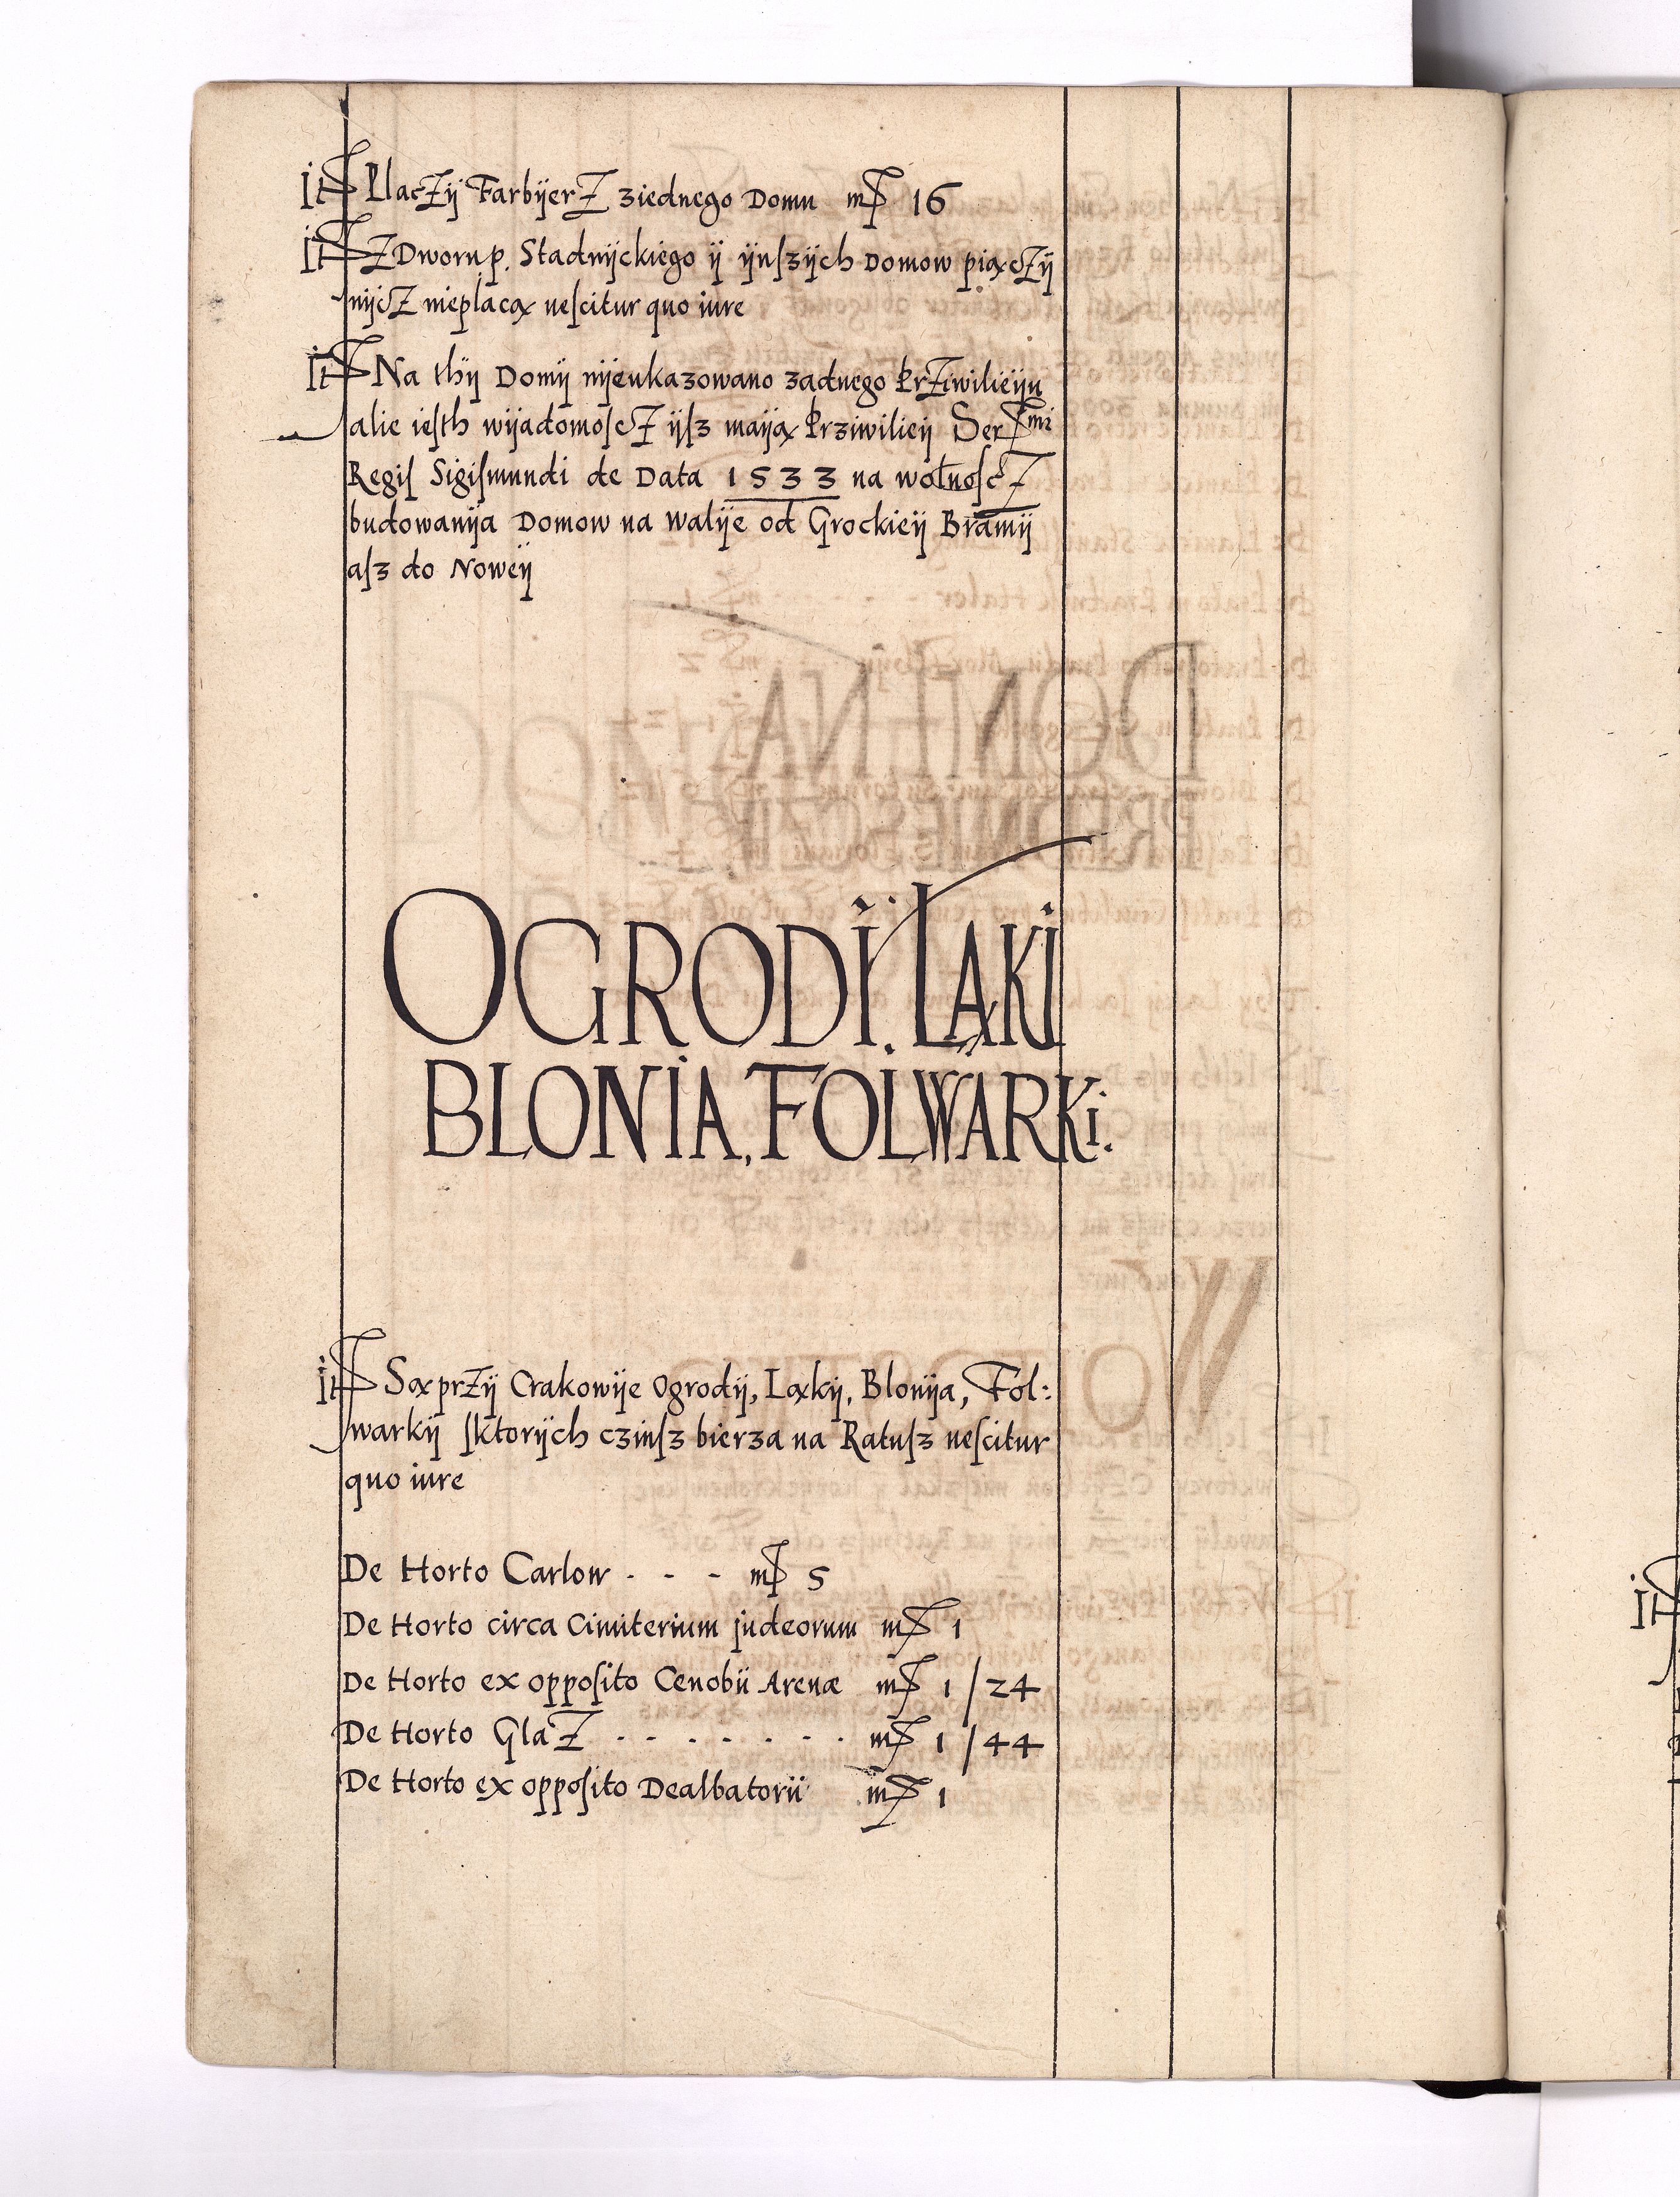 It Placzÿ Farbÿerz ziednego Domu mp 16
It Z Dworu p. Stadnÿckiego ÿ ÿnſzÿch Domow piączÿ
nÿcz nieplacą neſcitur quo iure
It Na thÿ Domÿ nÿeukazowano zadnego Przÿwilieÿu
alie ieſth wÿadomoſcz ÿſz maÿą Prziwilieÿ Ser mi
Regiſ Sigiſmundi de Data 1533 na wołnoſcz
budowanÿa Domow na walÿe od Grockieÿ Bramÿ
aſz do Noweÿ
OGRODÏ. ŁĄKI
BLONIA, FOLWARKi.
It Są przÿ Crakowÿe Ogrodÿ, Ląkÿ, Blonÿa, Fol:
warkÿ ſktorÿch czinſz bierza na Ratuſz neſcitur
quo iure
De Horto Carlow - - - mp 5
De Horto circa Cimiterium judeorum mp 1
De Horto ex oppoſito Cenobii Arenæ mp 1/24
De Horto Glaz - - - - - - - mp 1/44
De Horto ex oppoſito Dealbatorii mp 1